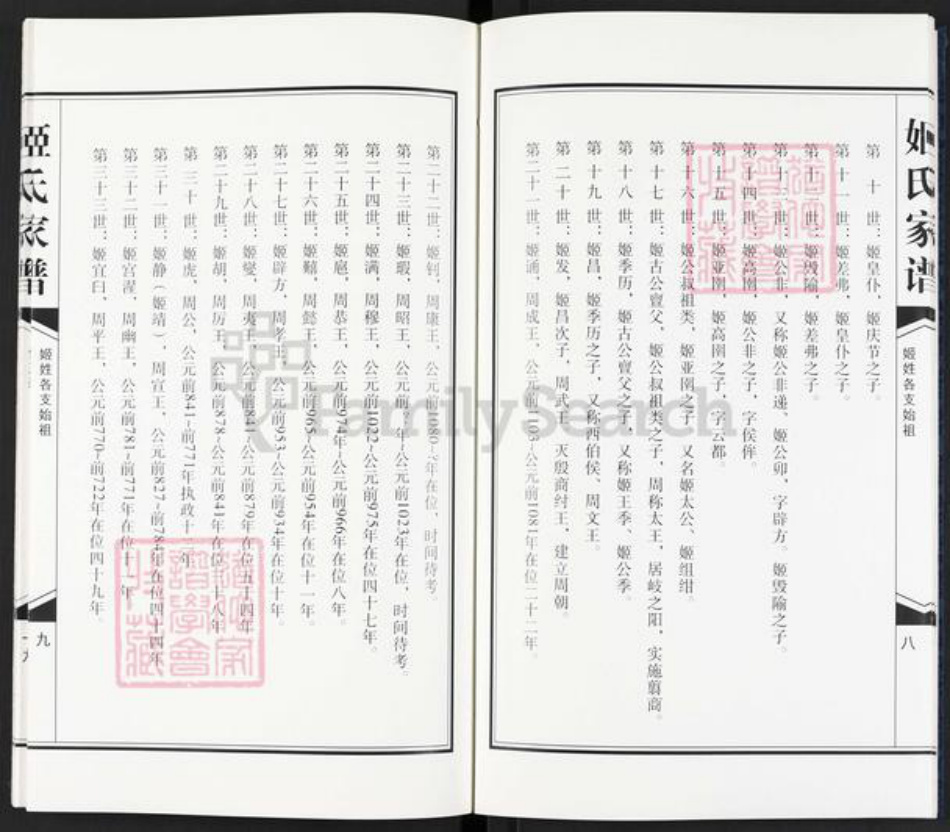 姬氏家谱
姬姓各支始祖
八
第十世：姬皇仆，姬庆节之子。
第十一世：姬差弗，姬皇仆之子。
第十二世：姬毁隃，姬差弗之子。
第十三世：姬公非，又称姬公非递、姬公卯，字辟方。姬毁隃之子。
第十四世：姬高圉，姬公非之子，字侯侔。
第十五世：姬亚圉，姬高圉之子，字云都。
第十六世：姬公叔祖类，姬亚圉之子，又名姬太公、姬组绀。
第十七世：姬古公亶父，姬公叔祖类之子，周称太王，居岐之阳，实施翦商。
第十八世：姬季历，姬古公亶父之子，又称姬王季、姬公季。
第十九世：姬昌，姬季历之子，又称西伯侯、周文王。
第二十世：姬发，姬昌次子，周武王，灭殷商纣王，建立周朝。
第二十一世：姬诵，周成王，公元前1103~公元前1081年在位二十二年。
第二十二世：姬钊，周康王，公元前1080~?年在位，时间待考。
第二十三世：姬瑕，周昭王，公元前?年~公元前1023年在位，时间待考。
第二十四世：姬满，周穆王，公元前1022~公元前975年在位四十七年。
第二十五世：姬扈，周恭王，公元前974年~公元前966年在位八年。
第二十六世：姬囏，周懿王，公元前965~公元前954年在位十一年。
第二十七世：姬辟方，周孝王，公元前953~公元前934年在位十年。
第二十八世：姬燮，周夷王，公元前841~公元前879年在位五十四年
第二十九世：姬胡，周厉王，公元前878~公元前841年在位三十八年
第三十世：姬虎，周公，公元前841~前771年执政十二年
第三十一世：姬静（姬靖），周宣王，公元前827~前784年在位四十四年
第三十二世：姬宫湦，周幽王，公元前781~前771年在位十一年
第三十三世：姬宜臼，周平王，公元前770~前722年在位四十九年。
姬氏家谱
姬姓各支始祖
九
FamilySearch